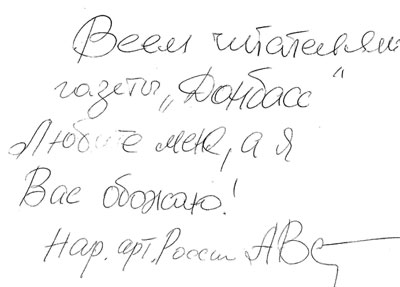 Всем читателям
газеты „Донбасс“
Любите меня, а я
Вас обожаю!
Нар. арт. России